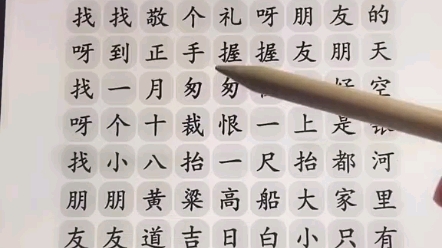 找找敬个礼呀朋友的
呀到正手握握友朋天
找一月匆匆好空
呀个十裁恨一上是银
找小八抬一尺抬都河
朋朋黄粱高船大家里
友友道吉日白小只有